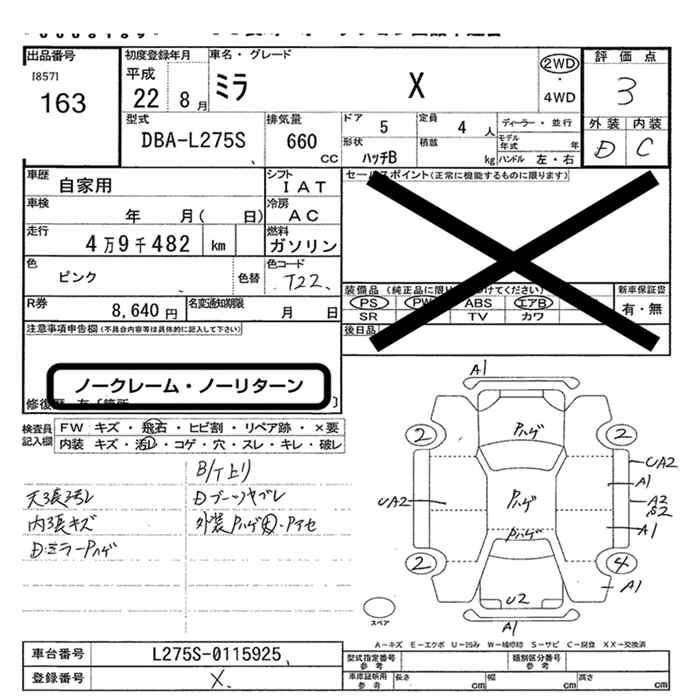 出品番号
[857]
163
初度登録年月
平成
22 8月
車名・グレード
ミラ X
2WD
・
4WD
評価点
3
外装 内装
D C
型式
DBA-L275S
排気量
660 CC
ドア 5
定員 4 人
ディーラー・並行
形状 ハッチB
積載 kg
モデル年式 年
ハンドル 左・右
車歴
自家用
シフト
IAT
セールスポイント(正常に機能するものに限ります)
車検
年 月( 日)
冷房
AC
走行
4万9千482 km
燃料
ガソリン
色
ピンク
色替
色コード
T22
装備品 (純正品に限り
けてください)
新車保証書
有・無
PS PW ABS エアB
SR TV カワ
後日品
R券
8,640円
名変通知期限
月 日
注意事項申告欄 (不具合内容等は具体的に記入して下さい)
ノークレーム・ノーリターン
修復歴
検査員記入欄
FW キズ・飛石・ヒビ割・リペア跡・×要
内装 キズ・汚レ・コゲ・穴・スレ・キレ・破レ
B/T上り
天張汚レ
Dブーツヤブレ
内張キズ
外装Pハゲ大・Pアセ
DミラーPハゲ
A1
Pハゲ
2 2
UA2
A1
UA2
Pハゲ
A2
S2
A1
Pハゲ
2 4
A1
U2
スペア
A1
A−キズ E−エクボ U−凹み W−補修跡 S−サビ C−腐食 XX−交換済
車台番号
L275S-0115925
登録番号
X
型式指定番号 参考
類別区分番号 参考
車庫証明用 参考
長さ cm
幅 cm
高さ cm